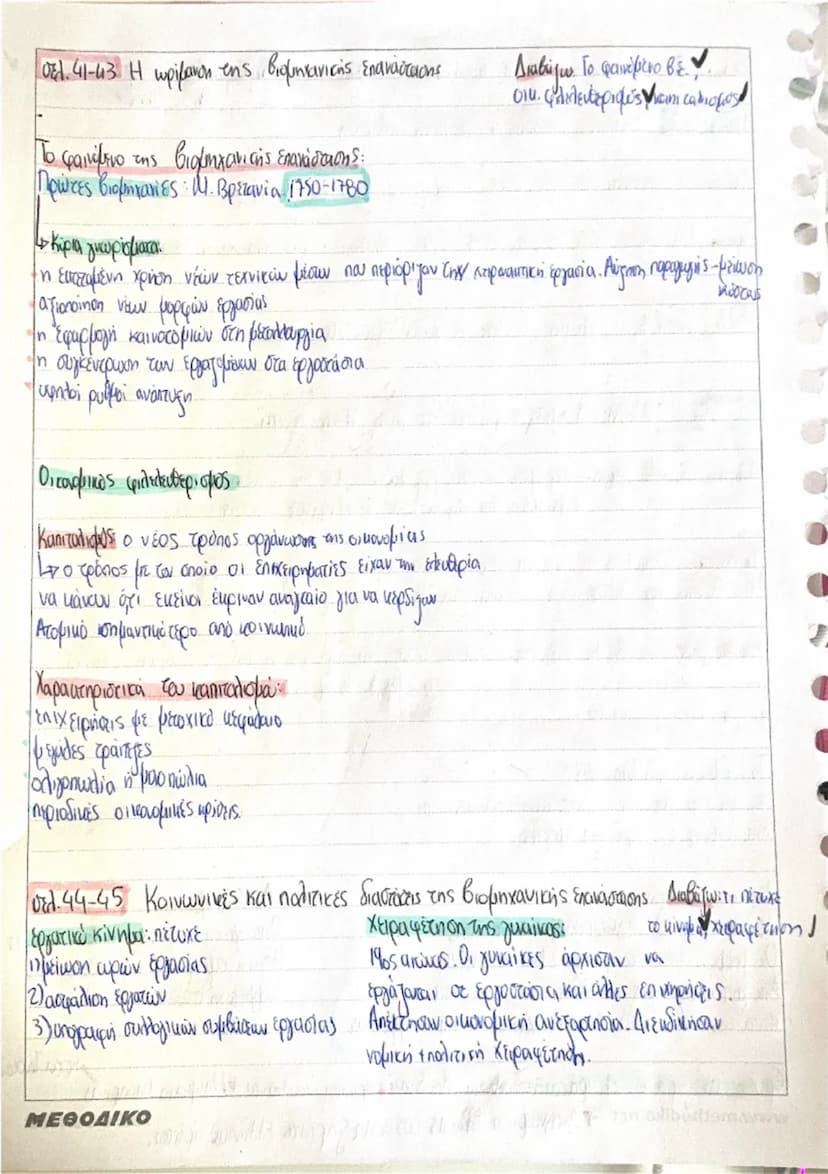 σελ.41-43 Η ωρίμανση της βιομηχανικής επανάστασης
Διαβάζω: Το φαινόμενο Β.Ε. ✓,
οικ. φιλελευθερισμός ✓ καπιταλισμός ✓
Το φαινόμενο της βιομηχανικής επανάστασης:
Πρώτες βιομηχανίες: Μ. Βρετανία 1750-1780
↳ Κύρια γνωρίσματα:
η εκτεταμένη χρήση νέων τεχνικών μέσων που περιόριζαν την χειρωνακτική εργασία. Αύξηση παραγωγής - μείωση
κόστους
αξιοποίηση νέων μορφών εργασίας
η εφαρμογή καινοτομιών στη μεταλλουργία
η συγκέντρωση των εργαζομένων στα εργοστάσια
υψηλοί ρυθμοί ανάπτυξη
Οικονομικός φιλελευθερισμός
Καπιταλισμός: ο νέος τρόπος οργάνωσης της οικονομίας
↳ ο τρόπος με τον οποίο οι επιχειρηματίες είχαν την ελευθερία
να κάνουν ό,τι εκείνοι έκριναν αναγκαίο για να κερδίζουν
Ατομικό σημαντικότερο από κοινωνικό
Χαρακτηριστικά του καπιταλισμού:
επιχειρήσεις με μετοχικό κεφάλαιο
μεγάλες τράπεζες
ολιγοπωλία ή μονοπώλια
περιοδικές οικονομικές κρίσεις.
σελ.44-45 Κοινωνικές και πολιτικές διαστάσεις της βιομηχανικής επανάστασης Διαβάζω: τι πέτυχε
το κίνημα ✓, χειραφέτηση ✓
Εργατικό κίνημα: πέτυχε
1) μείωση ωρών εργασίας
2) ασφάλιση εργατών
3) υπογραφή συλλογικών συμβάσεων εργασίας
Χειραφέτηση της γυναίκας:
19ος αιώνας. Οι γυναίκες άρχισαν να
εργάζονται σε εργοστάσια και άλλες επιχειρήσεις.
Απέκτησαν οικονομική ανεξαρτησία. Διεκδίκησαν
νομική + πολιτική χειραφέτηση.
ΜΕΘΟΔΙΚΟ